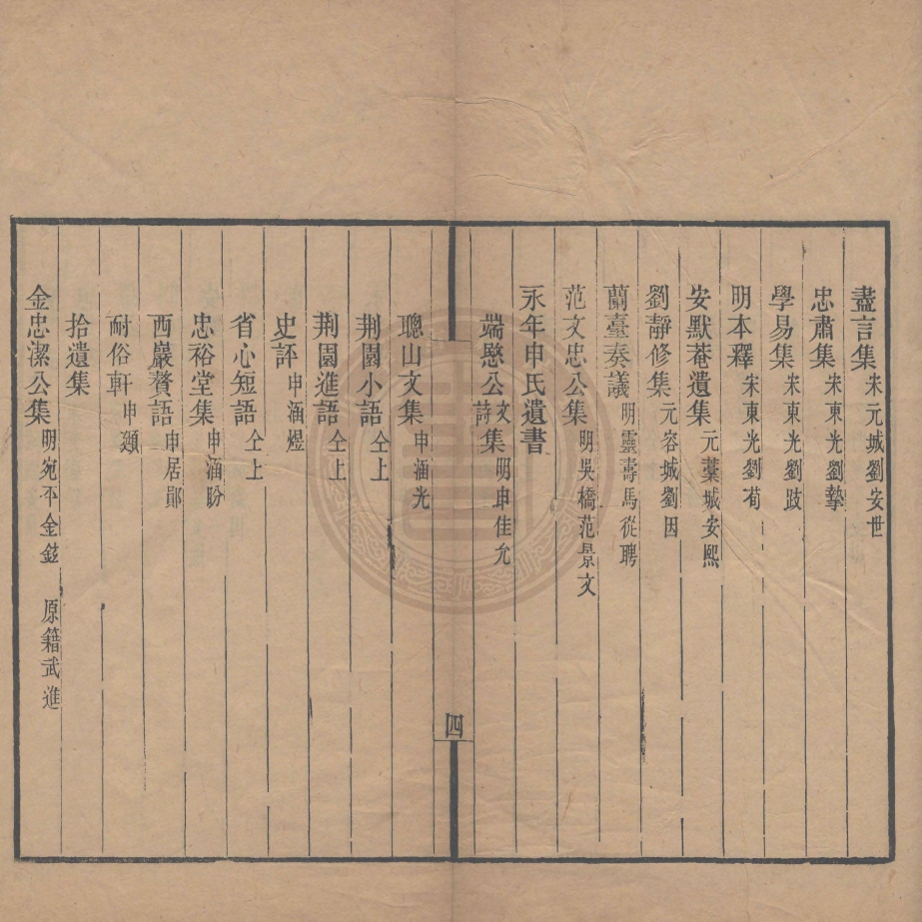 盡言集 宋元城劉安世
忠肅集 宋東光劉摯
學易集 宋東光劉跂
明本釋 宋東光劉荀
安默菴遺集 元藁城安熙
劉靜修集 元容城劉因
蘭臺奏議 明靈壽馬從聘
范文忠公集 明吳橋范景文
永年申氏遺書
端愍公文詩集 明申佳允
四
聰山文集 申涵光
荆園小語 仝上
荆園進語 仝上
史評 申涵煜
省心短語 仝上
忠裕堂集 申涵盼
西巖贅語 申居鄖
耐俗軒 申頲
拾遺集
金忠潔公集 明宛平金鉉 原籍武進